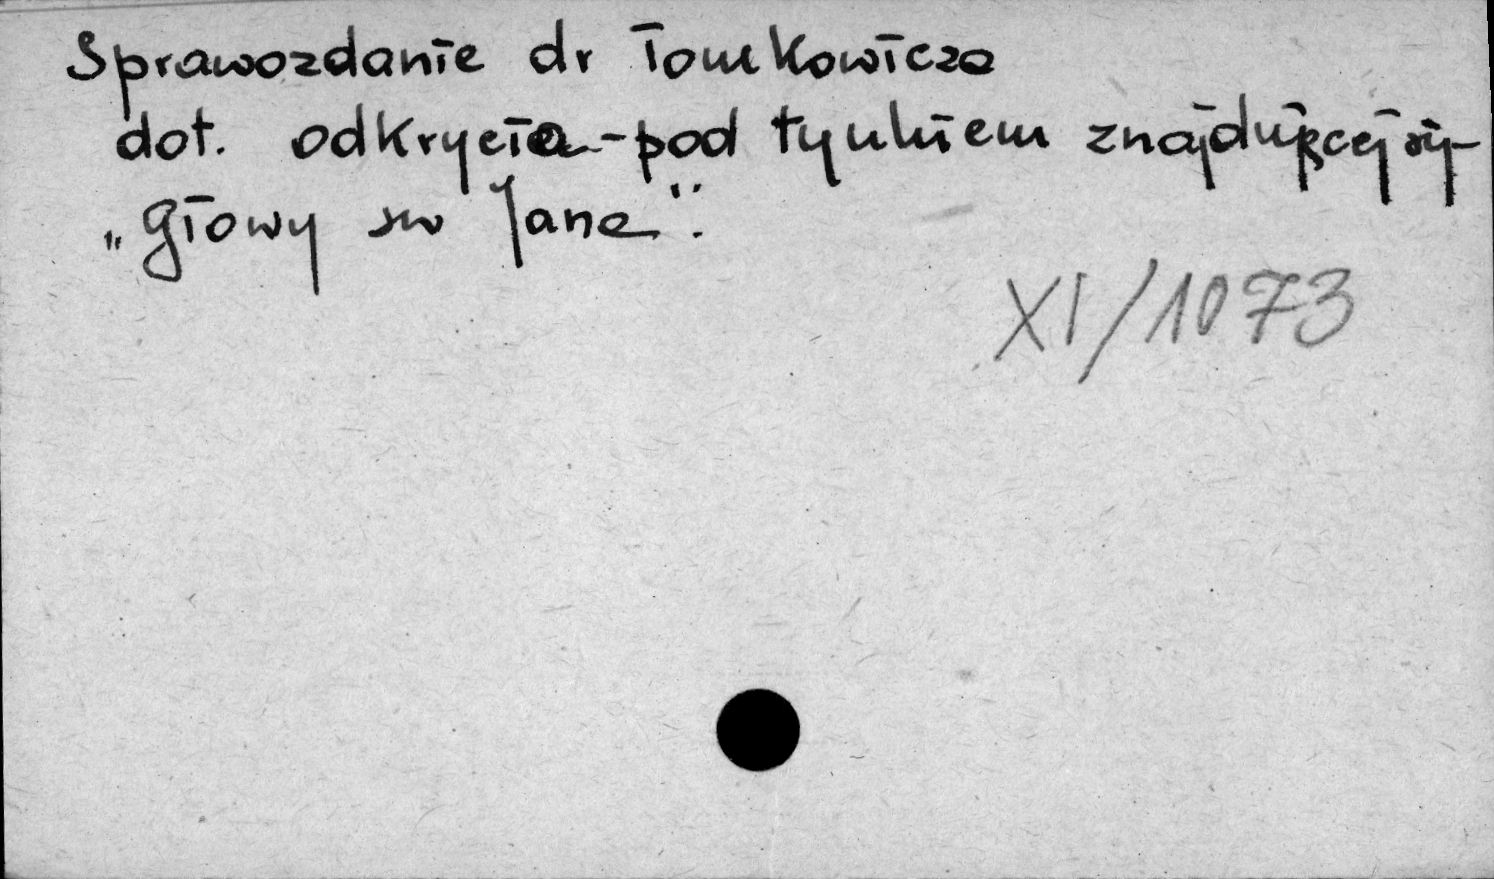 Sprawozdanie dr Tomkowicza
dot. odkrycia - pod tynkiem znajdującej się -
„głowy św Jana".
XI/1073